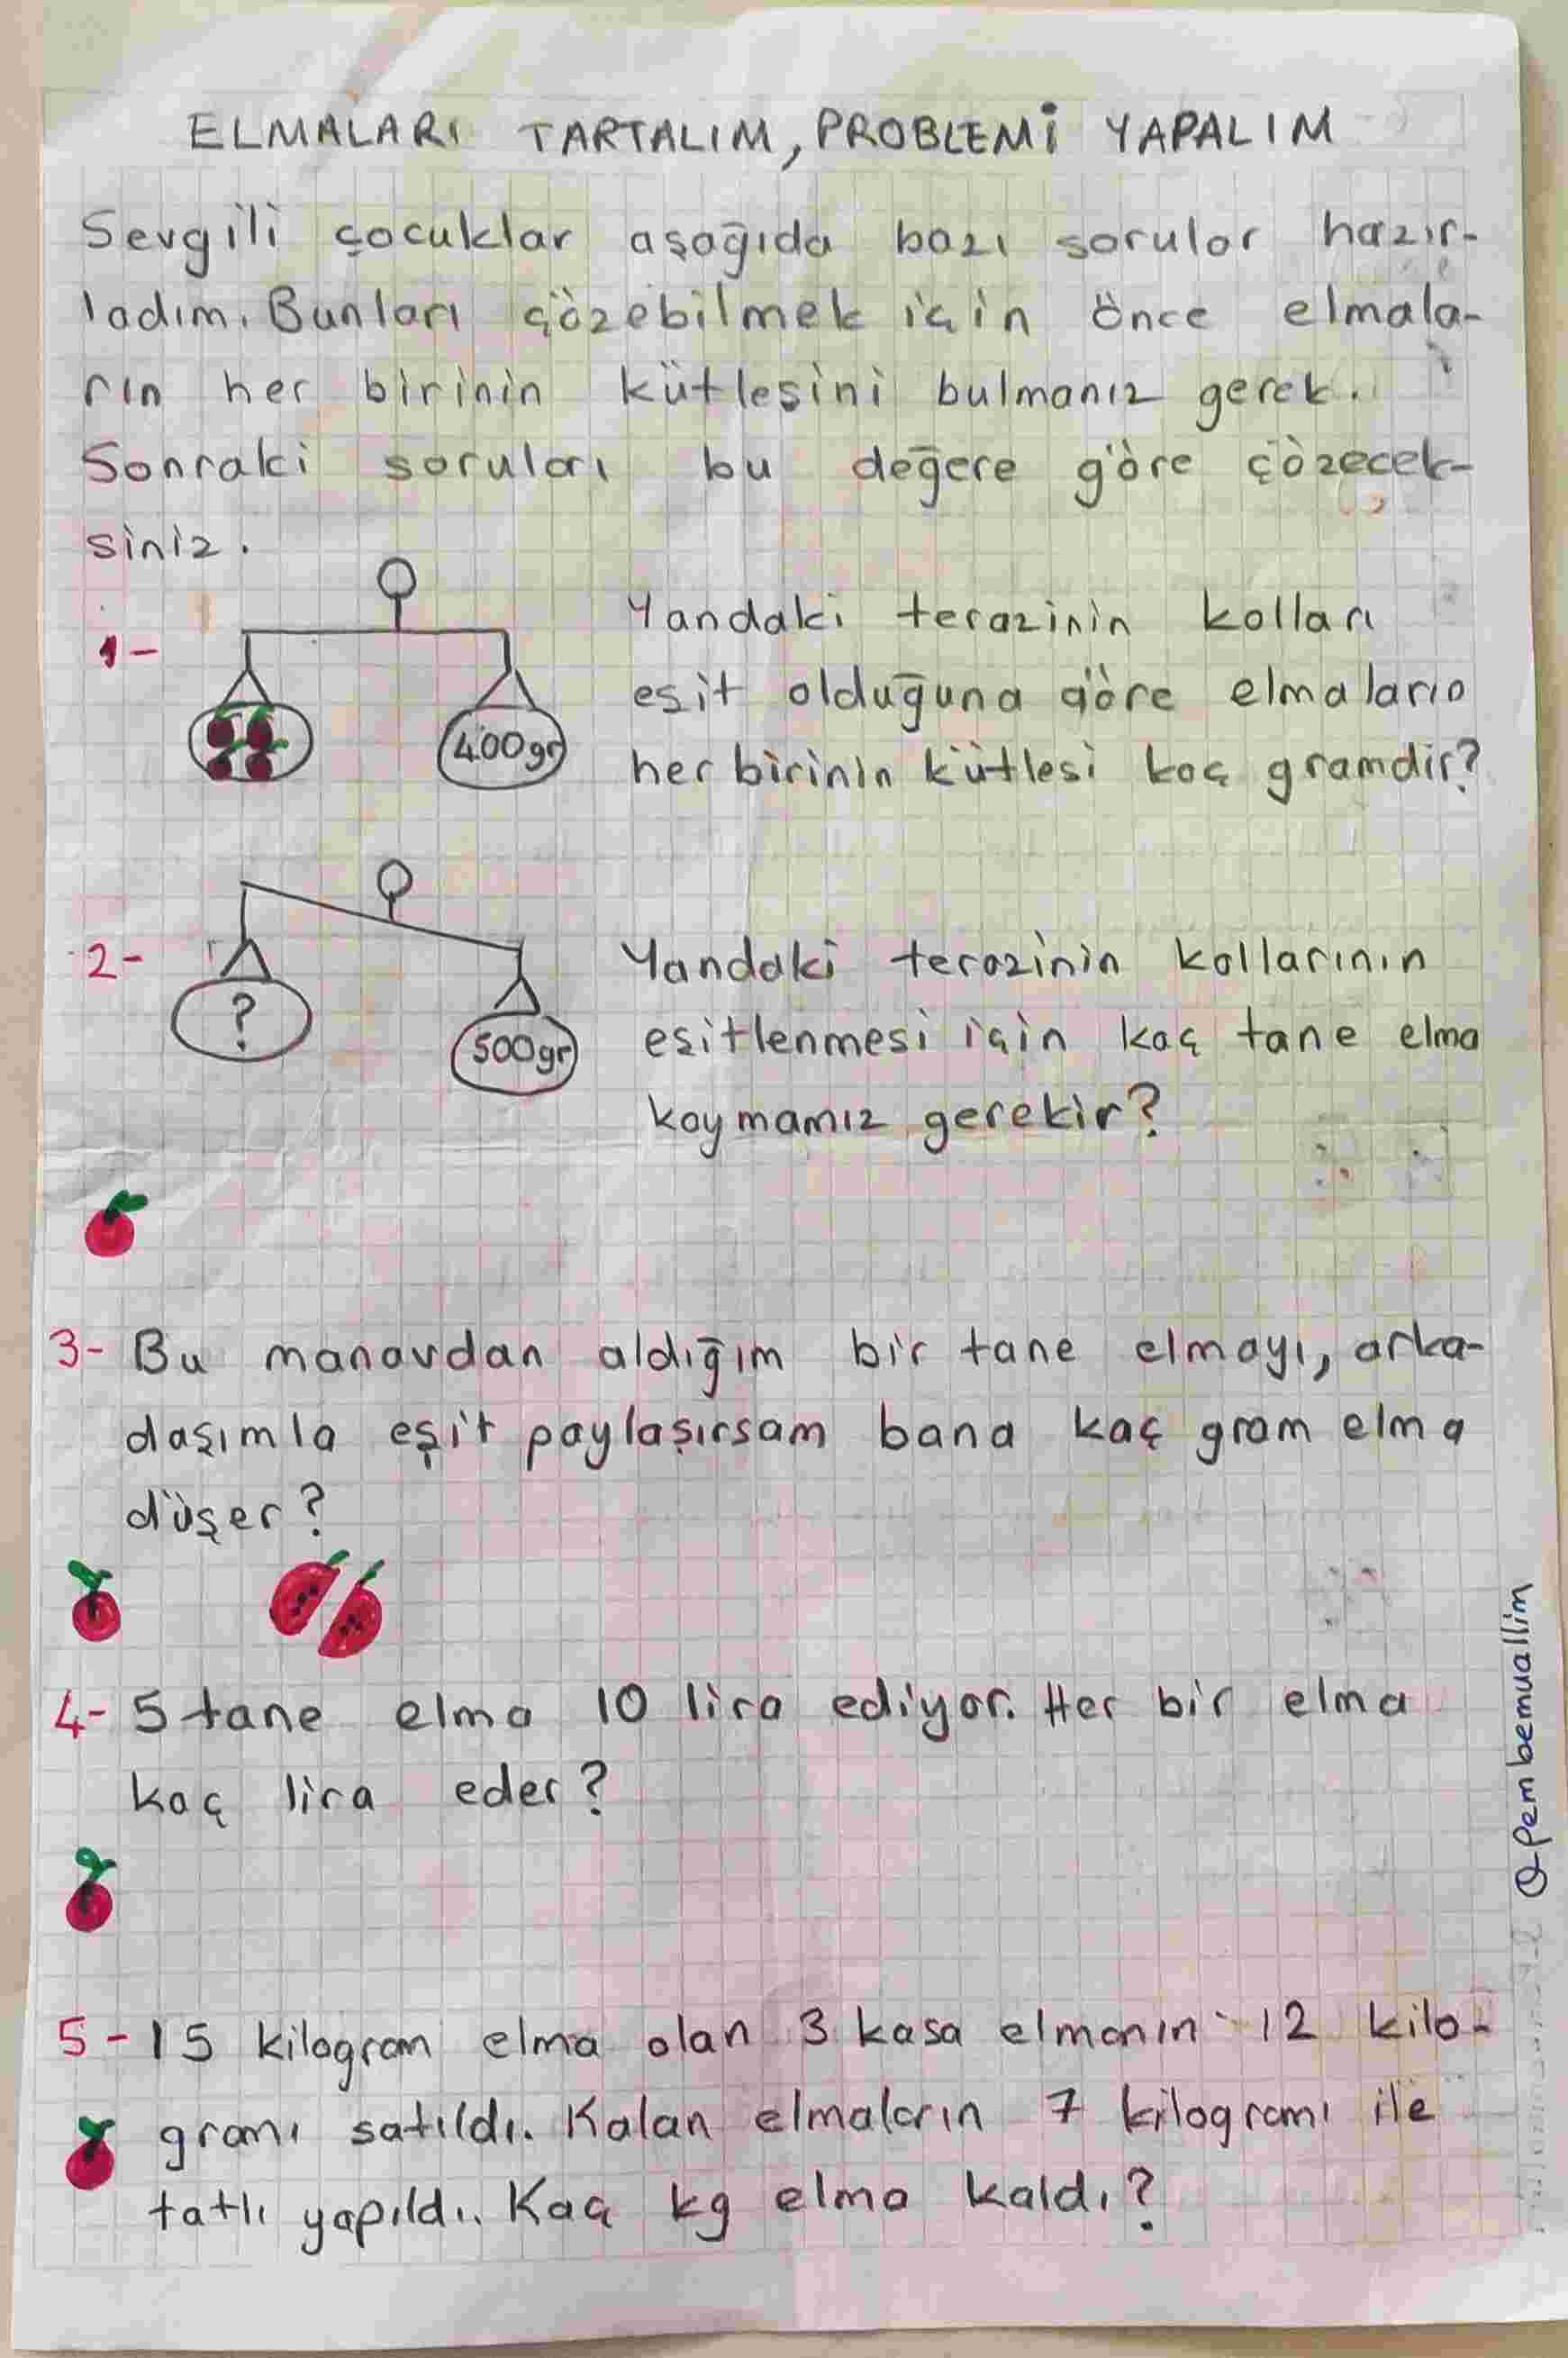 ELMALARI TARTALIM, PROBLEMİ YAPALIM
Sevgili çocuklar aşağıda bazı sorular hazır-
ladım. Bunları çözebilmek için önce elmala-
rın her birinin kütlesini bulmanız gerek.
Sonraki soruları bu değere göre çözecek-
siniz.
1- Yandaki terazinin kolları
eşit olduğuna göre elmaların
400gr
her birinin kütlesi kaç gramdir?
2- Yandaki terazinin kollarının
?
500gr
eşitlenmesi için kaç tane elma
koymamız gerekir?
3- Bu manavdan aldığım bir tane elmayı, arka-
daşımla eşit paylaşırsam bana kaç gram elma
düşer?
4- 5 tane elma 10 lira ediyor. Her bir elma
kaç lira eder?
5- 15 kilogram elma olan 3 kasa elmanın 12 kilo-
gramı satıldı. Kalan elmaların 7 kilogramı ile
tatlı yapıldı. Kaç kg elma kaldı?
@pembemuallim